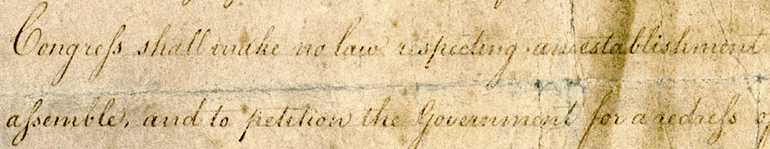 Congreſs shall make no law respecting an establishment
aſsemble, and to petition the Government for a redreſs of